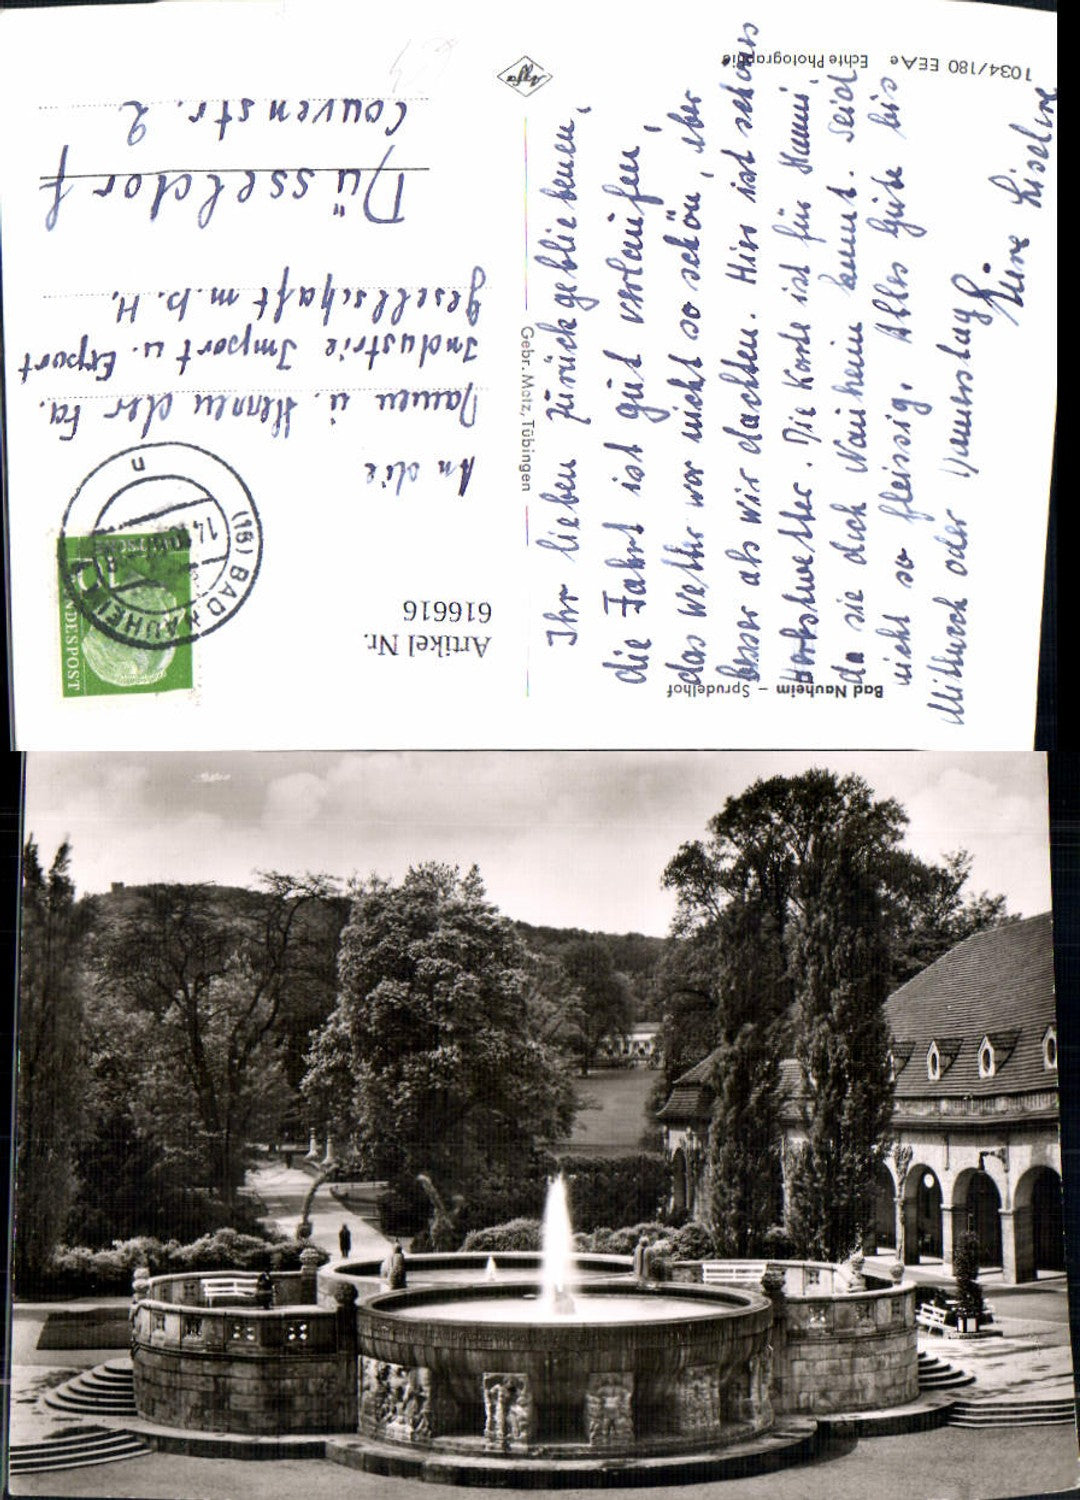 1034/180 EEAe Echte Photographie
Agfa
Bad Nauheim – Sprudelhof
Gebr. Metz, Tübingen
Artikel Nr.
616616
(16) BAD NAUHEIM
n
14.
NDESPOST
Ihr lieben zurückgebliebenen,
die Fahrt ist gut verlaufen,
das Wetter war nicht so schön, aber
besser als wir dachten. Hier ist schönes
Herbstwetter. Die Karte ist für Hanni,
da sie doch Nauheim kennt. Seid
nicht so fleissig. Alles Gute bis
Mittwoch oder Donnerstag
Eure Liselore
An die
Damen u. Herren der Fa.
Industrie Import u. Export
Gesellschaft m.b.H.
Düsseldorf
Couvenstr. 2